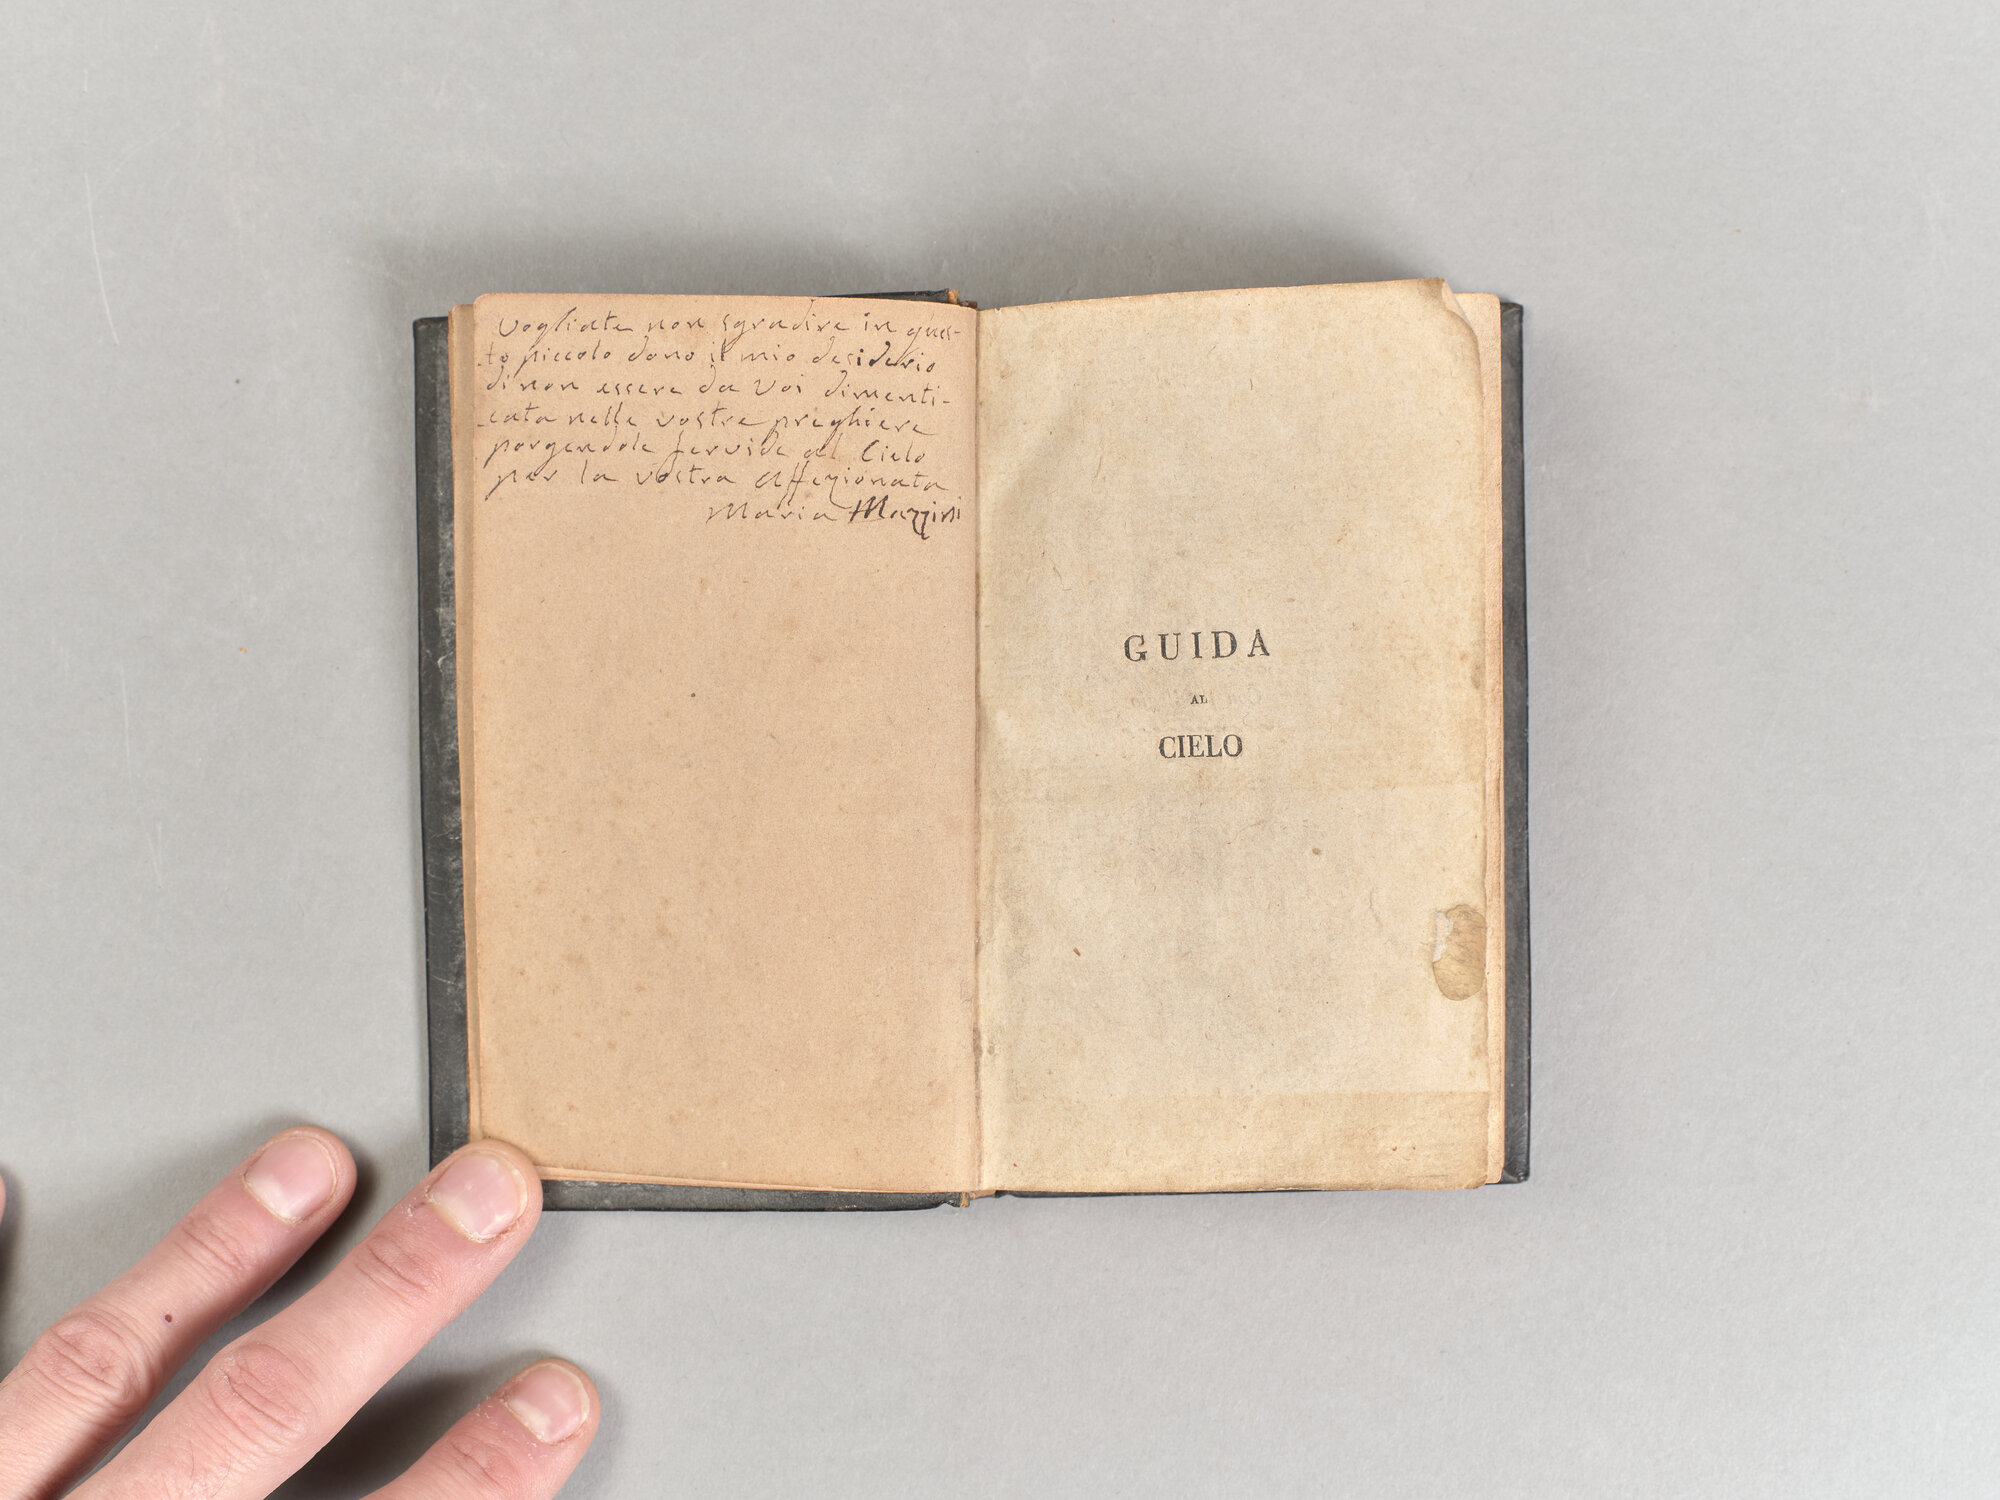 Vogliate non sgradire in ques-
to piccolo dono il mio desiderio
di non essere da Voi dimenti-
cata nelle vostre preghiere
porgendole fervide al Cielo
per la vostra affezionata
Maria Mazzini
GUIDA
AL
CIELO